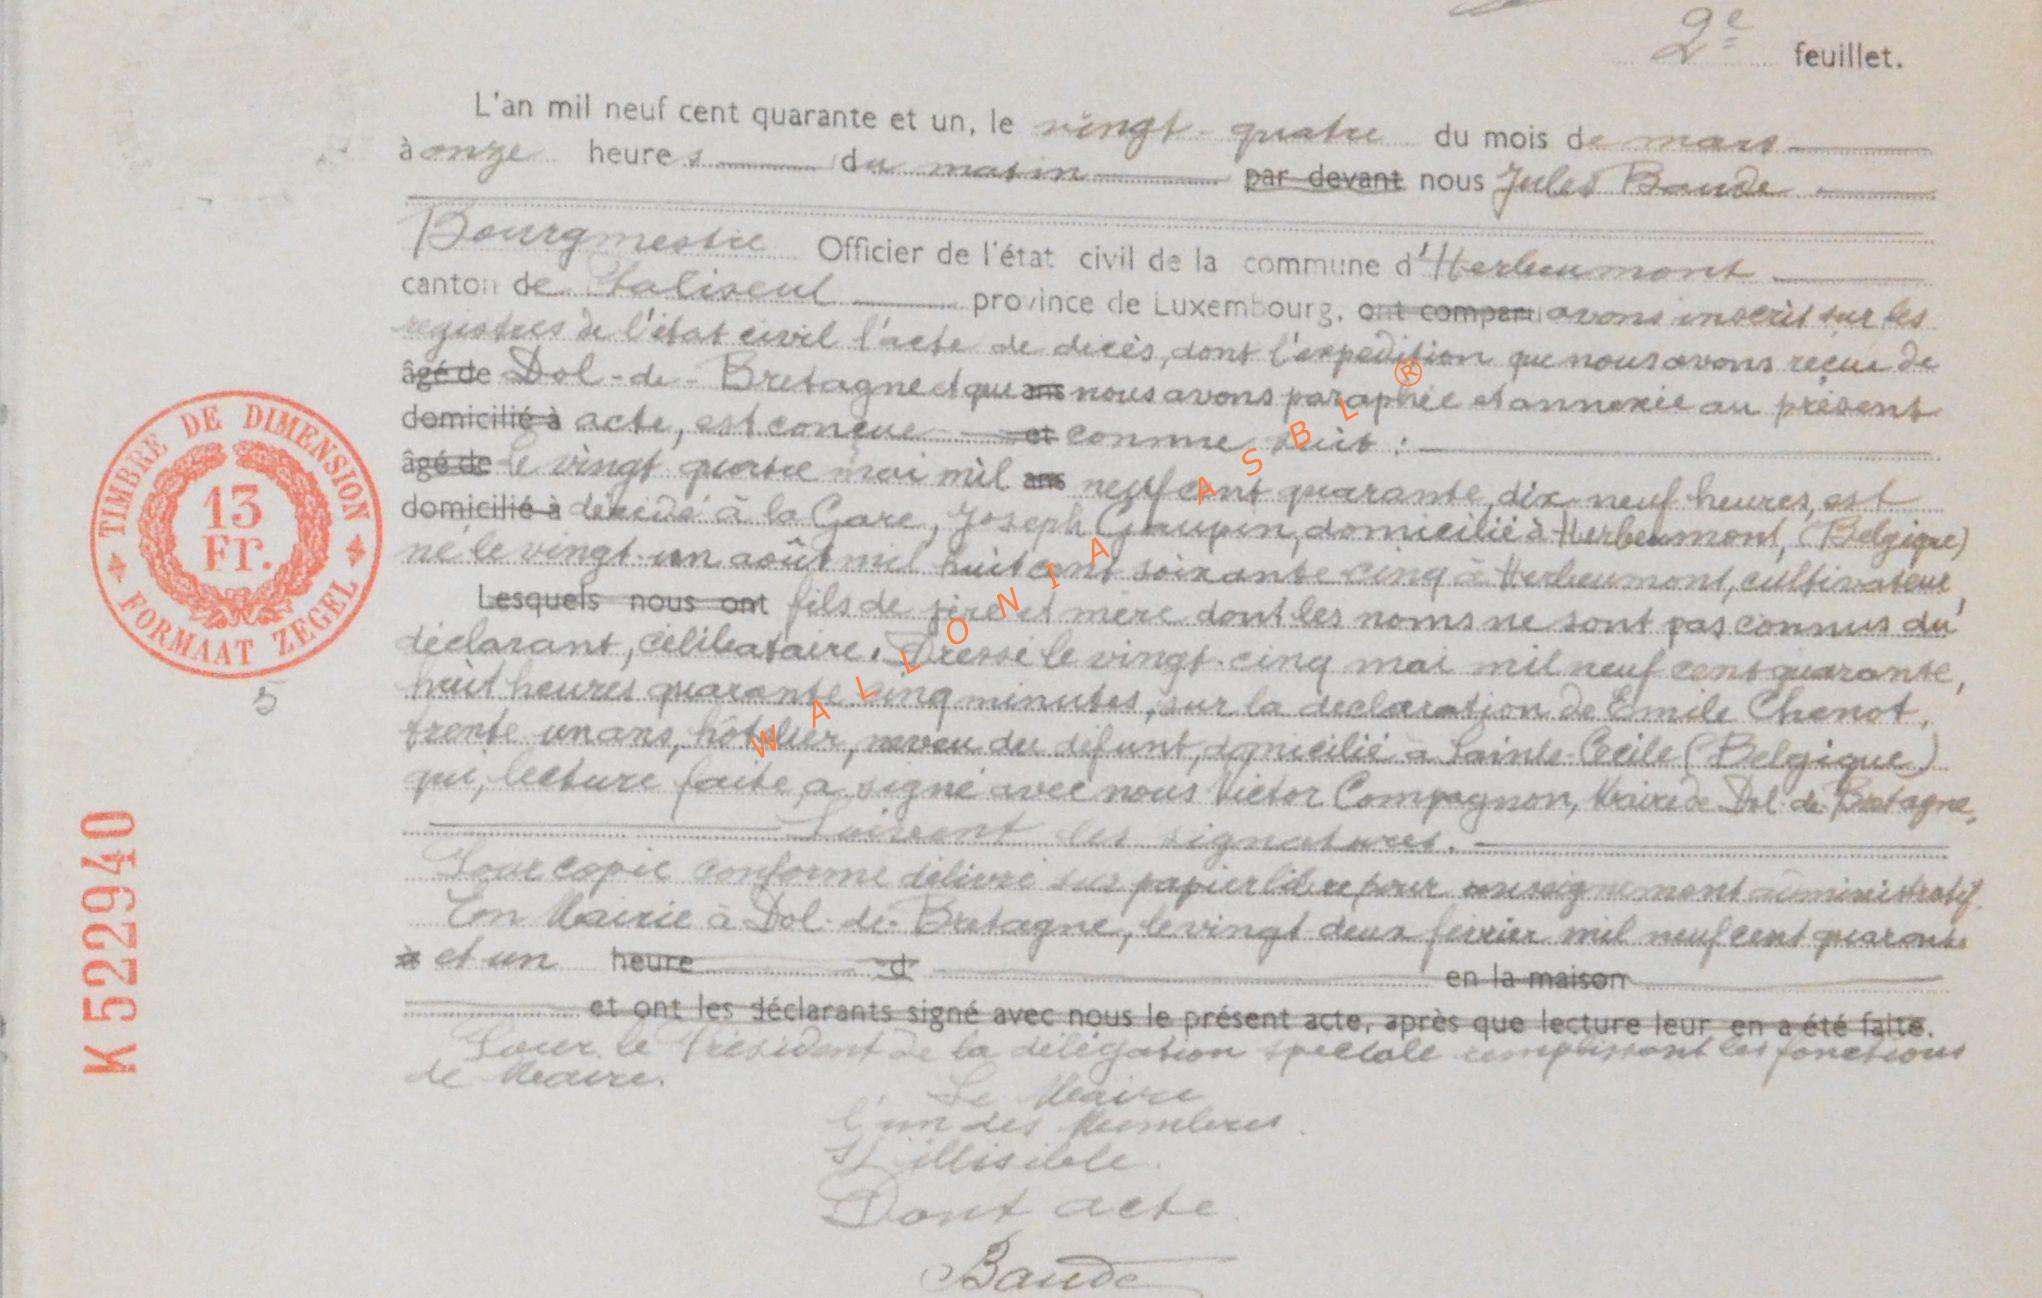 2e feuillet.
L'an mil neuf cent quarante et un, le vingt-quatre du mois de mars
à onze heures du matin par devant nous Jules Baude
Bourgmestre Officier de l'état civil de la commune d'Herbeumont
canton de Paliseul province de Luxembourg, ont comparu avons inscrit sur les
registres de l'état civil l'acte de décès, dont l'expédition que nous avons reçue de
âgé de Dol-de-Bretagne et que ans nous avons paraphée et annexée au présent
domicilié à acte, est conçue et comme suit :
âgé de le vingt quatre mai mil ans neuf cent quarante, dix-neuf heures, est
domicilié à décédé à la Gare, Joseph Gaupin, domicilié à Herbeumont, (Belgique)
né le vingt-un août mil huit cent soixante-cinq à Herbeumont, cultivateur,
Lesquels nous ont fils de père et mère dont les noms ne sont pas connus du
déclarant, célibataire. Dressé le vingt-cinq mai mil neuf cent quarante,
huit heures quarante cinq minutes, sur la déclaration de Emile Chenot,
trente un ans, hôtelier, neveu du défunt, domicilié à Sainte-Cécile (Belgique)
qui, lecture faite, a signé avec nous Victor Compagnon, Maire de Dol-de-Bretagne,
Suivent les signatures.
Pour copie conforme délivré sur papier libre pour renseignement administratif.
En Mairie à Dol-de-Bretagne, le vingt deux février mil neuf cent quarante
à et un heure d en la maison
et ont les déclarants signé avec nous le présent acte, après que lecture leur en a été faite.
Pour le Président de la délégation spéciale remplissant les fonctions
de Maire.
Le Maire
l'un des Membres.
S/ illisible.
Dont acte.
Baude
TIMBRE DE DIMENSION
13
Fr.
FORMAAT ZEGEL
5
K 522940
WALLONIA ASBL ®